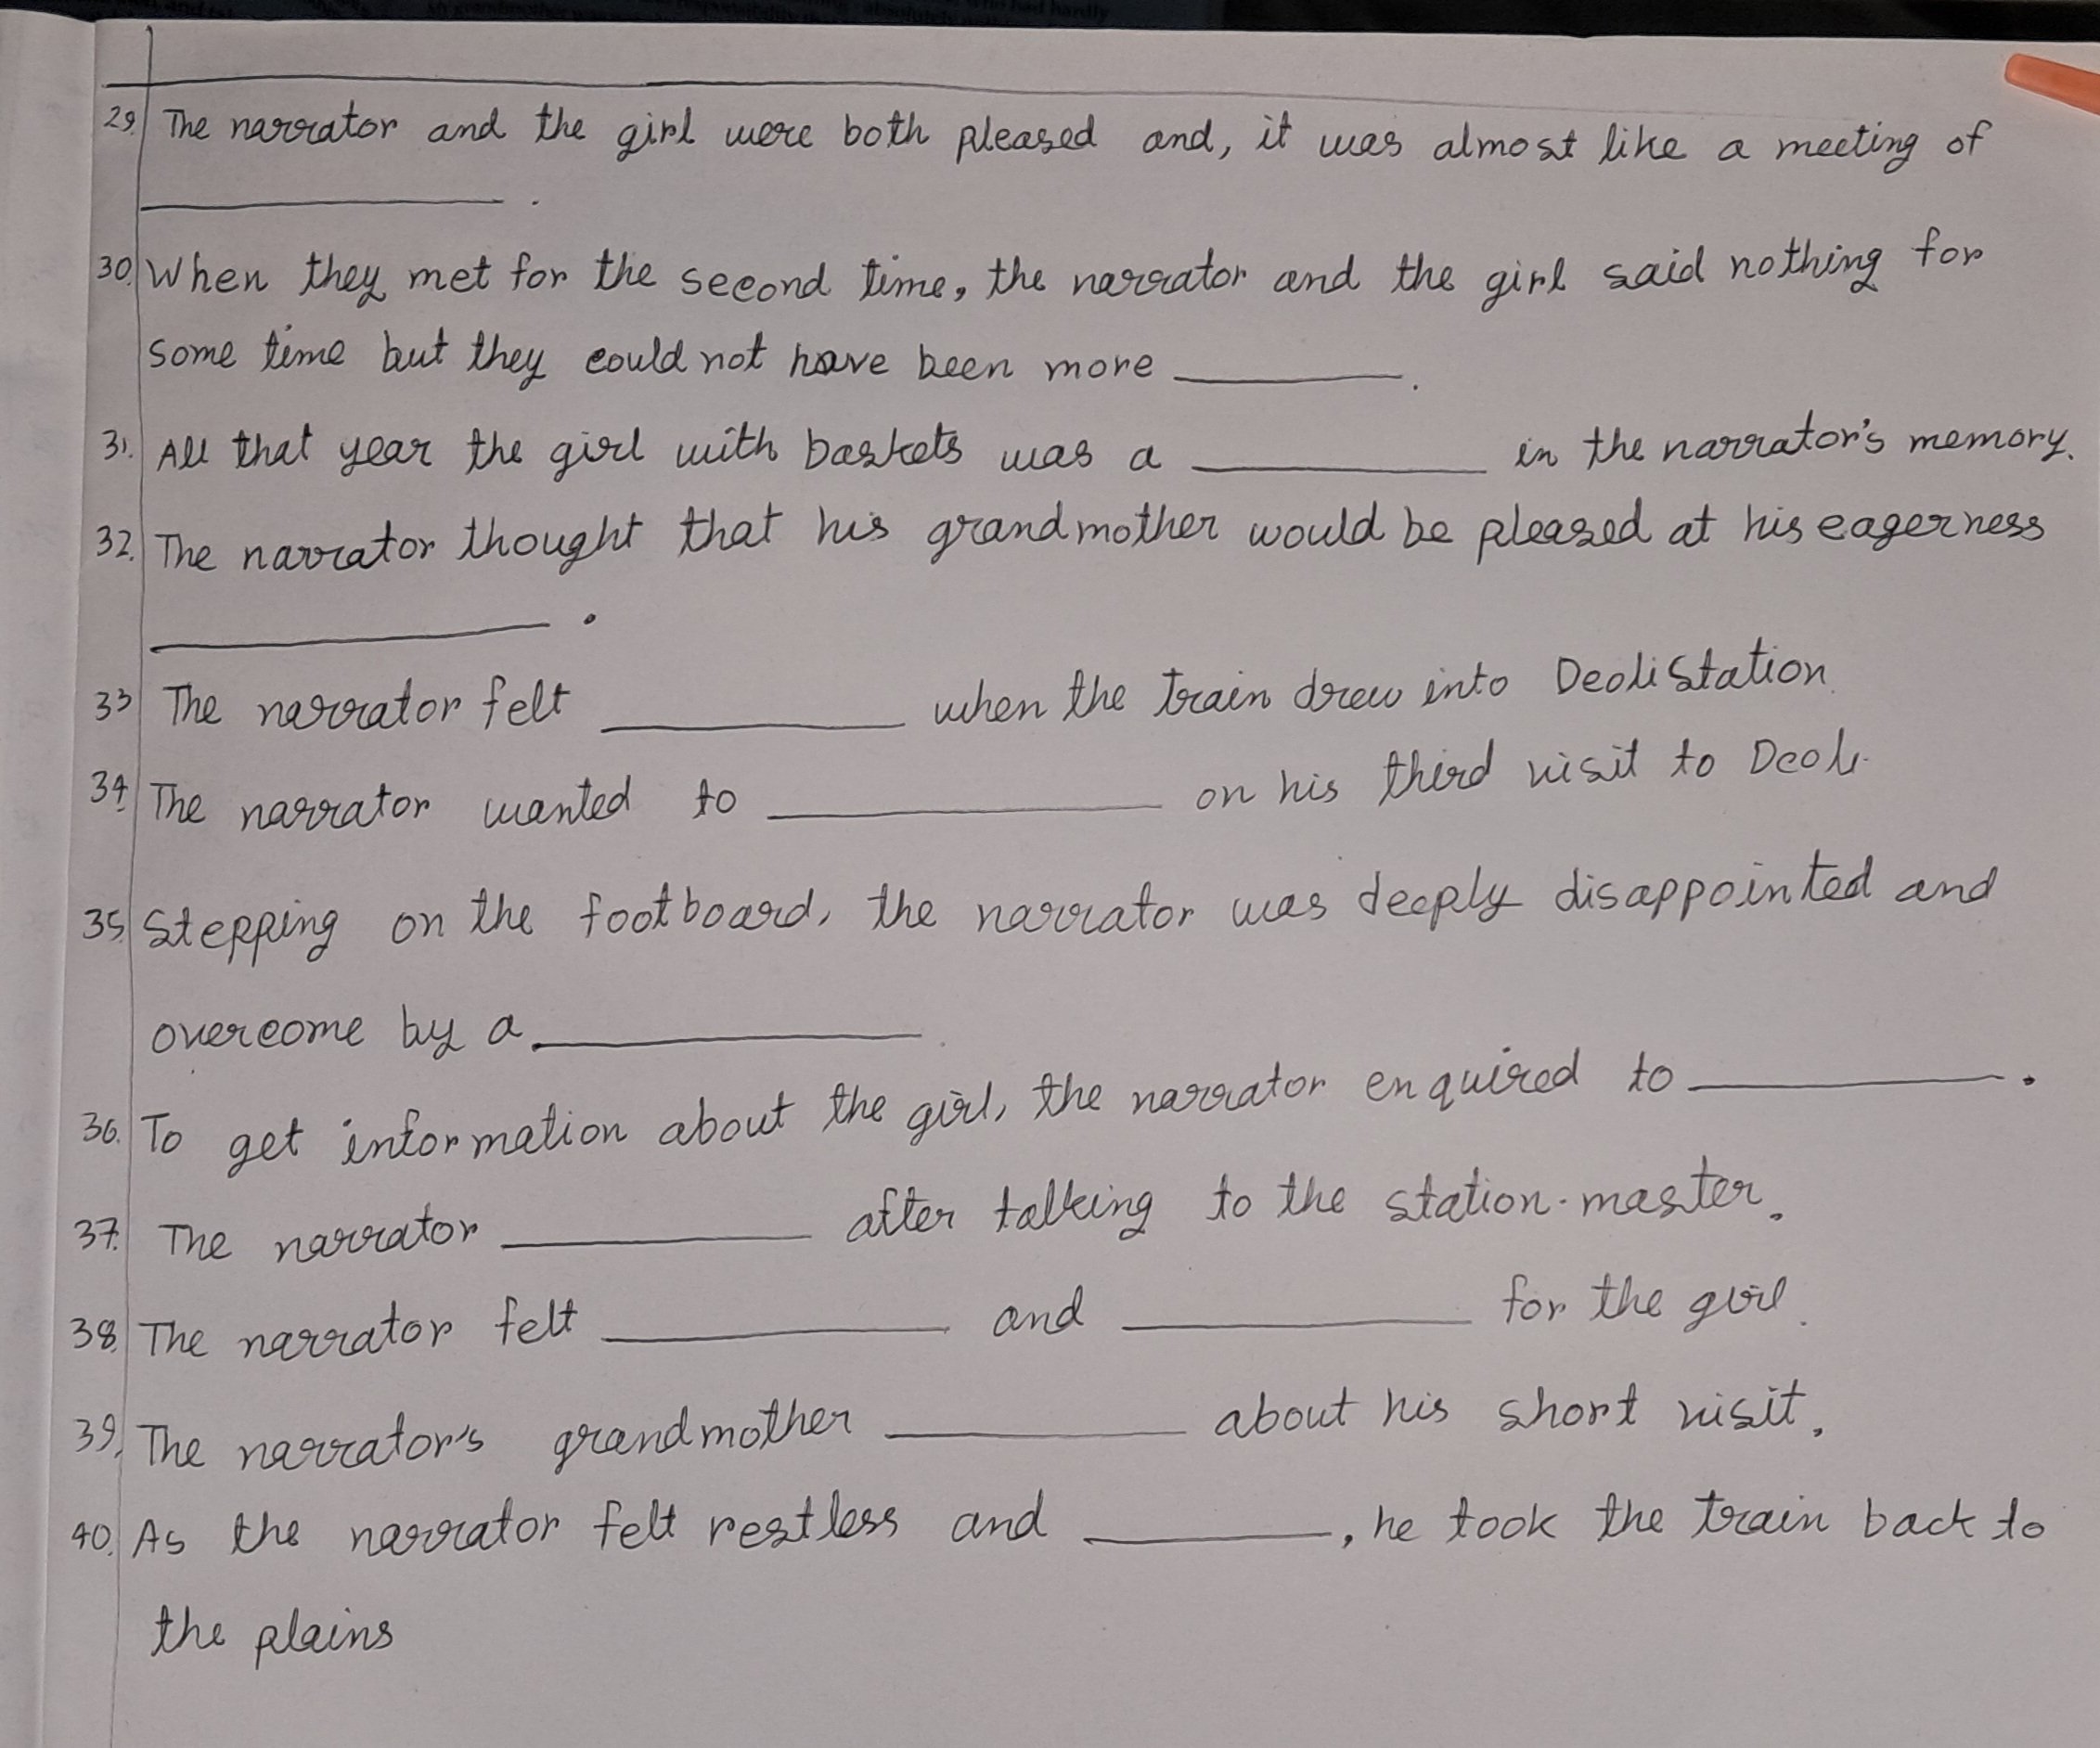 29. The narrator and the girl were both pleased and, it was almost like a meeting of
____________ .
30. When they met for the second time, the narrator and the girl said nothing for
some time but they could not have been more ________.
31. All that year the girl with baskets was a __________ in the narrator's memory.
32. The narrator thought that his grandmother would be pleased at his eagerness
____________ .
33 The narrator felt __________ when the train drew into Deoli Station.
34. The narrator wanted to ____________ on his third visit to Deoli.
35. Stepping on the footboard, the narrator was deeply disappointed and
overcome by a ____________.
36. To get information about the girl, the narrator enquired to __________ .
37. The narrator __________ after talking to the station-master.
38. The narrator felt __________ and __________ for the girl.
39. The narrator's grandmother __________ about his short visit.
40. As the narrator felt restless and ________, he took the train back to
the plains